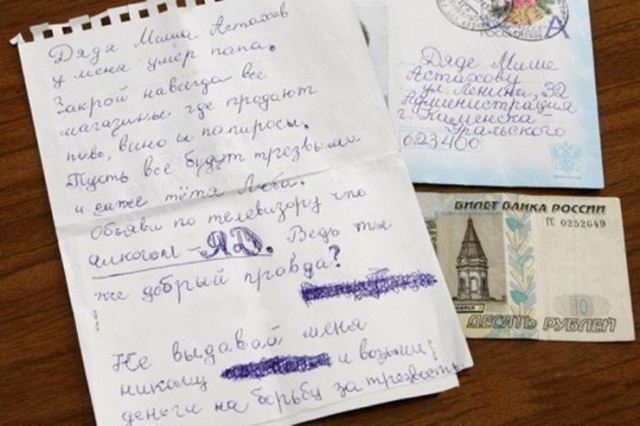 Дядя Миша Астахов
у меня умер папа.
Закрой навсегда все
магазины, где продают
пиво, вино и папиросы.
Пусть все будут трезвыми.
и даже тётя Люба.
Объяви по телевизору что
алкоголь - ЯД. Ведь ты
же добрый правда?
Не выдавай меня
никому и возьми
деньги на борьбу за трезвость
РОССИЯ
А
Дяде Мише
Астахову
ул. Ленина, 32
Администрация
г. Каменска-
Уральского
623400
БИЛЕТ БАНКА РОССИИ
ГС 0252649
10
ДЕСЯТЬ РУБЛЕЙ